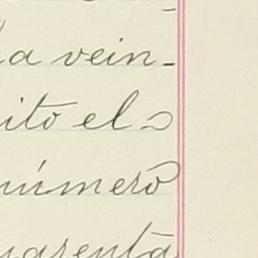 a vein-
ito el
número
uarenta